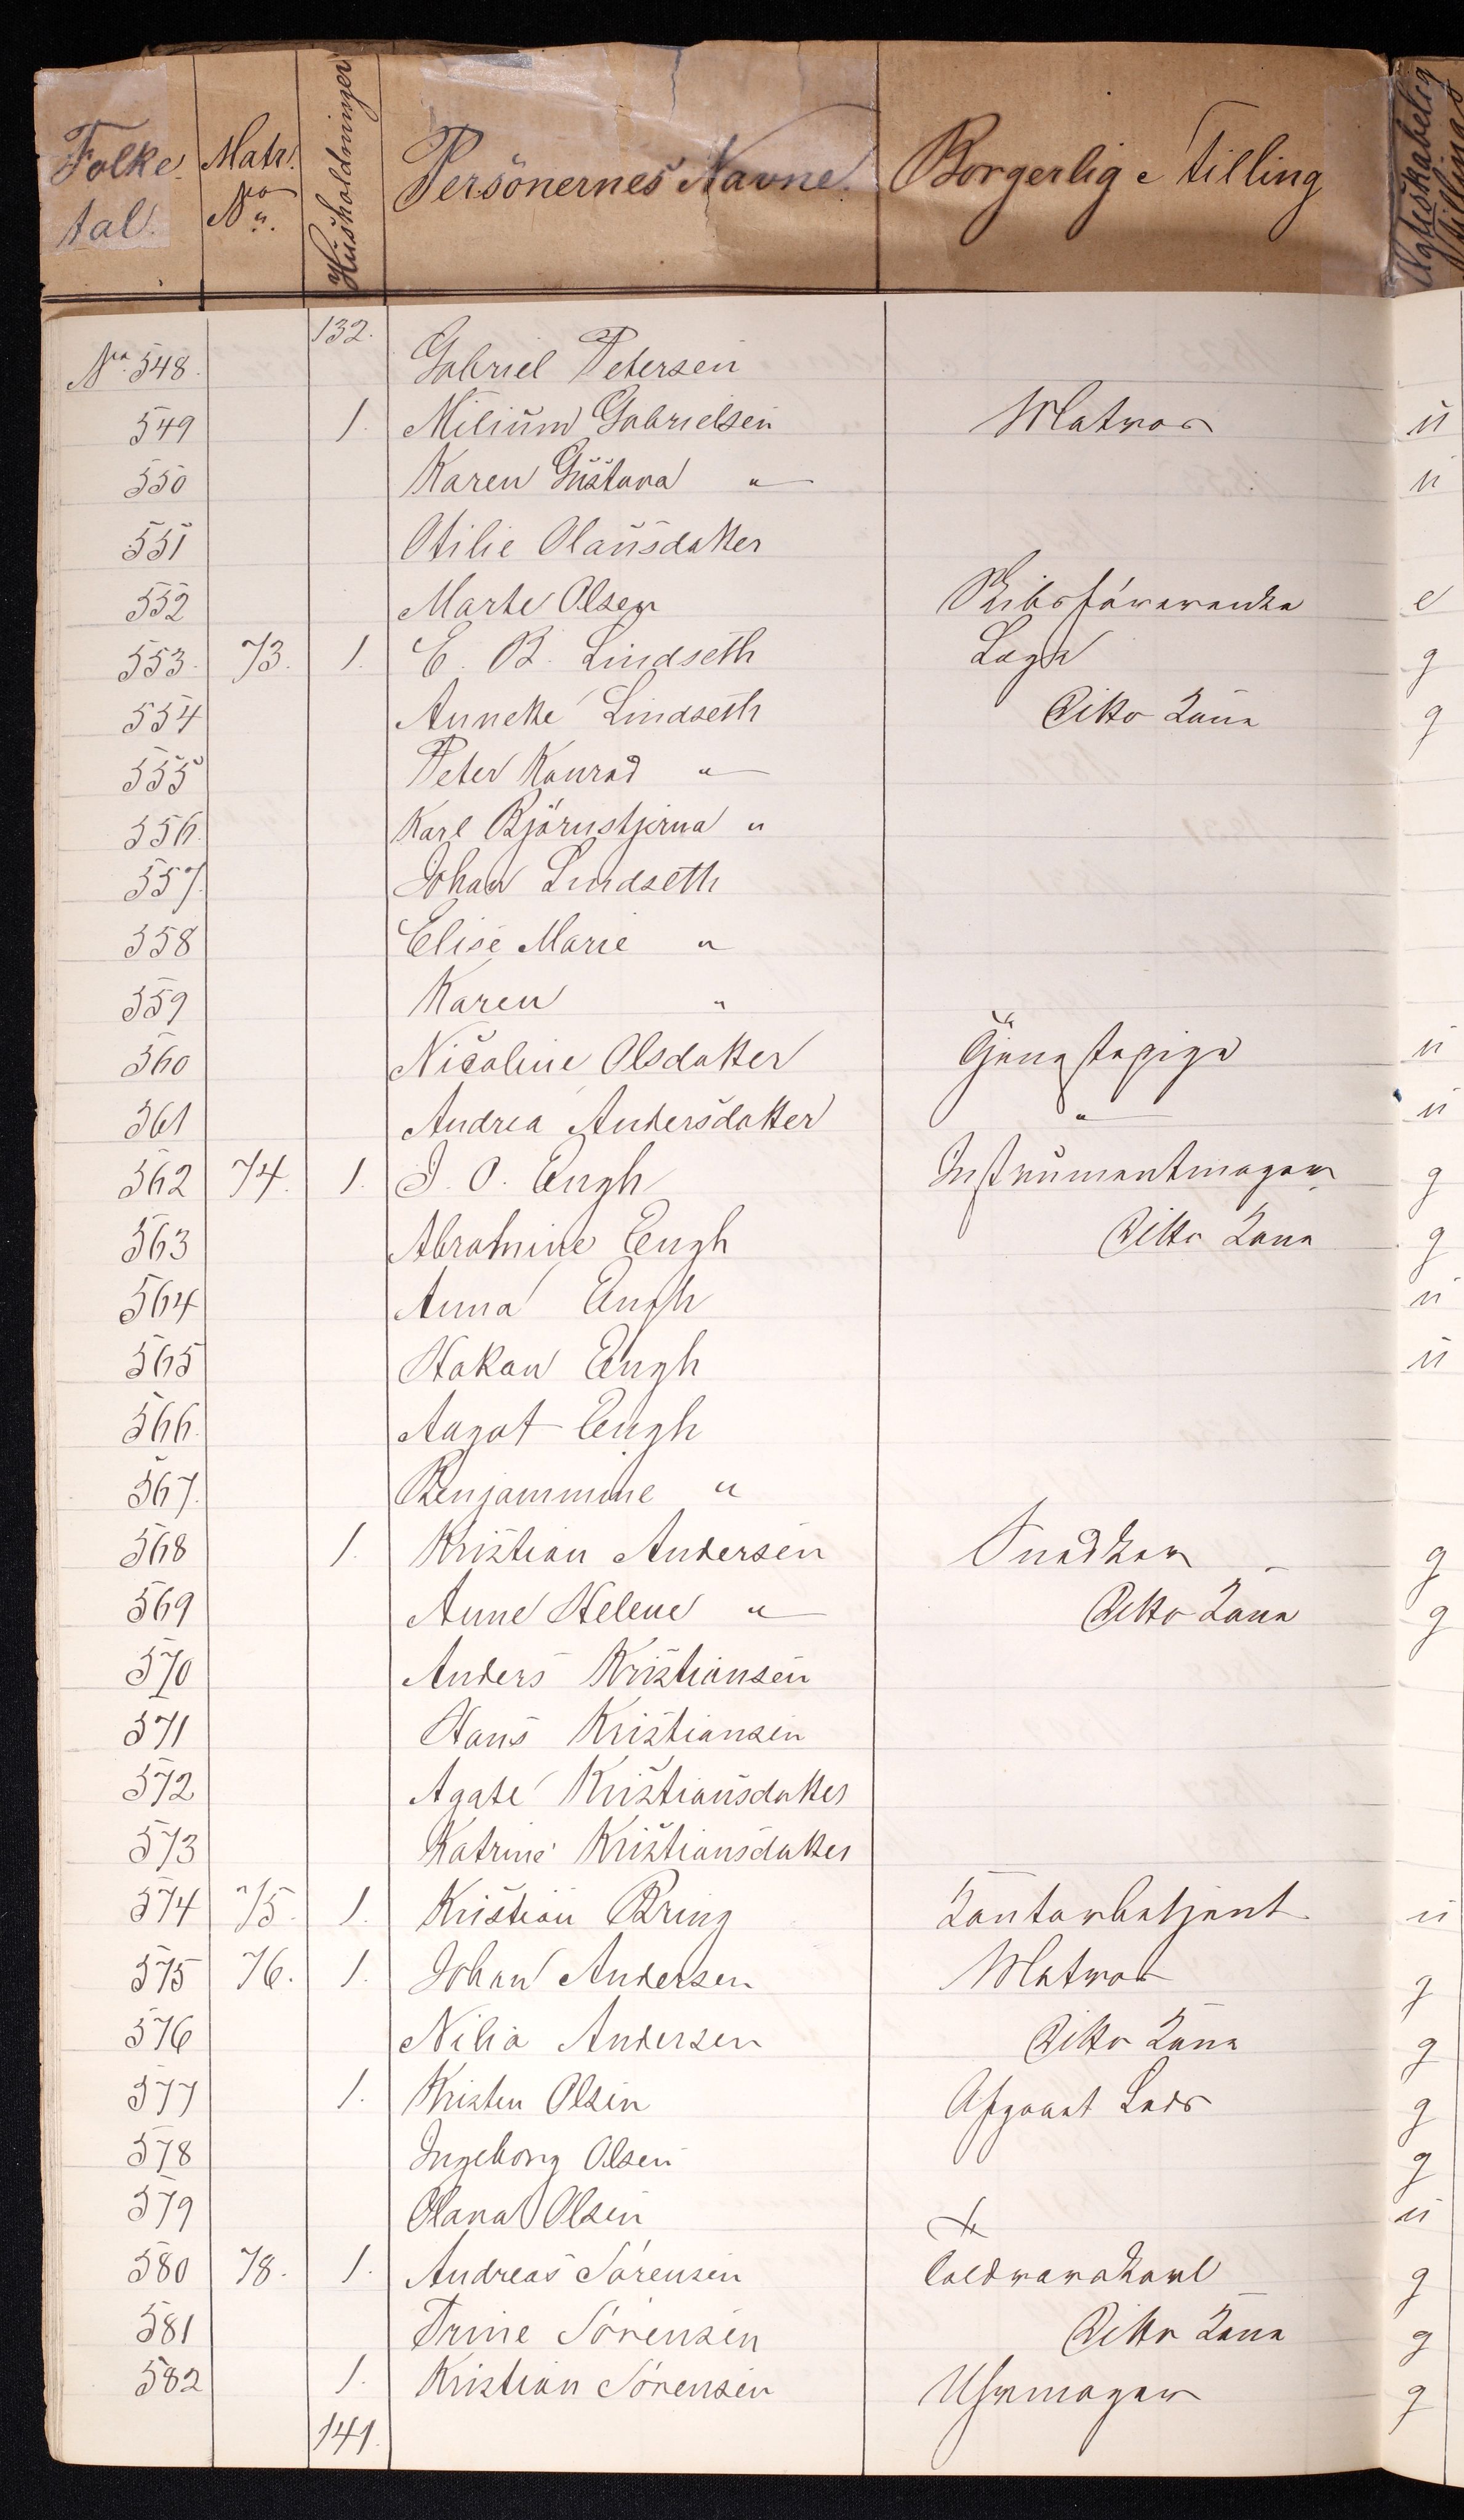 Folke Matr. Husholdninger Personernes Navne. Borgerlig Stilling Ægteskabelig Stilling
tal. No
132.
No 548. Gabriel Petersen
549 1. Milium Gabrielsen Matros u
550 Karen Gustava " u
551 Otilie Olausdatter
552 Marte Olsen Skibsførerenke e
553. 73. 1. E. B. Lindseth Læge g
554 Annette Lindseth Ditto Kone g
555 Peter Konrad "
556. Karl Björnstjerna "
557. Johan Lindseth
558 Elise Marie "
559 Karen "
560 Nicoline Olsdatter Tjenestepige u
561 Andrea Andersdatter " u
562 74. 1. J. O. Engh Instrumentmager g
563 Abrahmine Engh Ditto Kone g
564 Anna Engh u
565 Hakan Engh u
566. Aagot Engh
567. Benjammine "
568 1. Kristian Andersen Snedker g
569 Anne Helene " Ditto Kone g
570 Anders Kristiansen
571 Hans Kristiansen
572 Agate Kristiansdatter
573 Katrine Kristiansdatter
574 75. 1. Kristian Bring Kontorbetjent u
575 76. 1. Johan Andersen Matros g
576 Nilia Andersen Ditto Kone g
577 1. Kristen Olsen Afgaaet Lods g
578 Ingeborg Olsen g
579 Olana Olsen u
580 78. 1. Andreas Sørensen Toldrorskarl g
581 Trine Sörensen Ditto Kone g
582 1. Kristian Sörensen Uhrmager g
141.